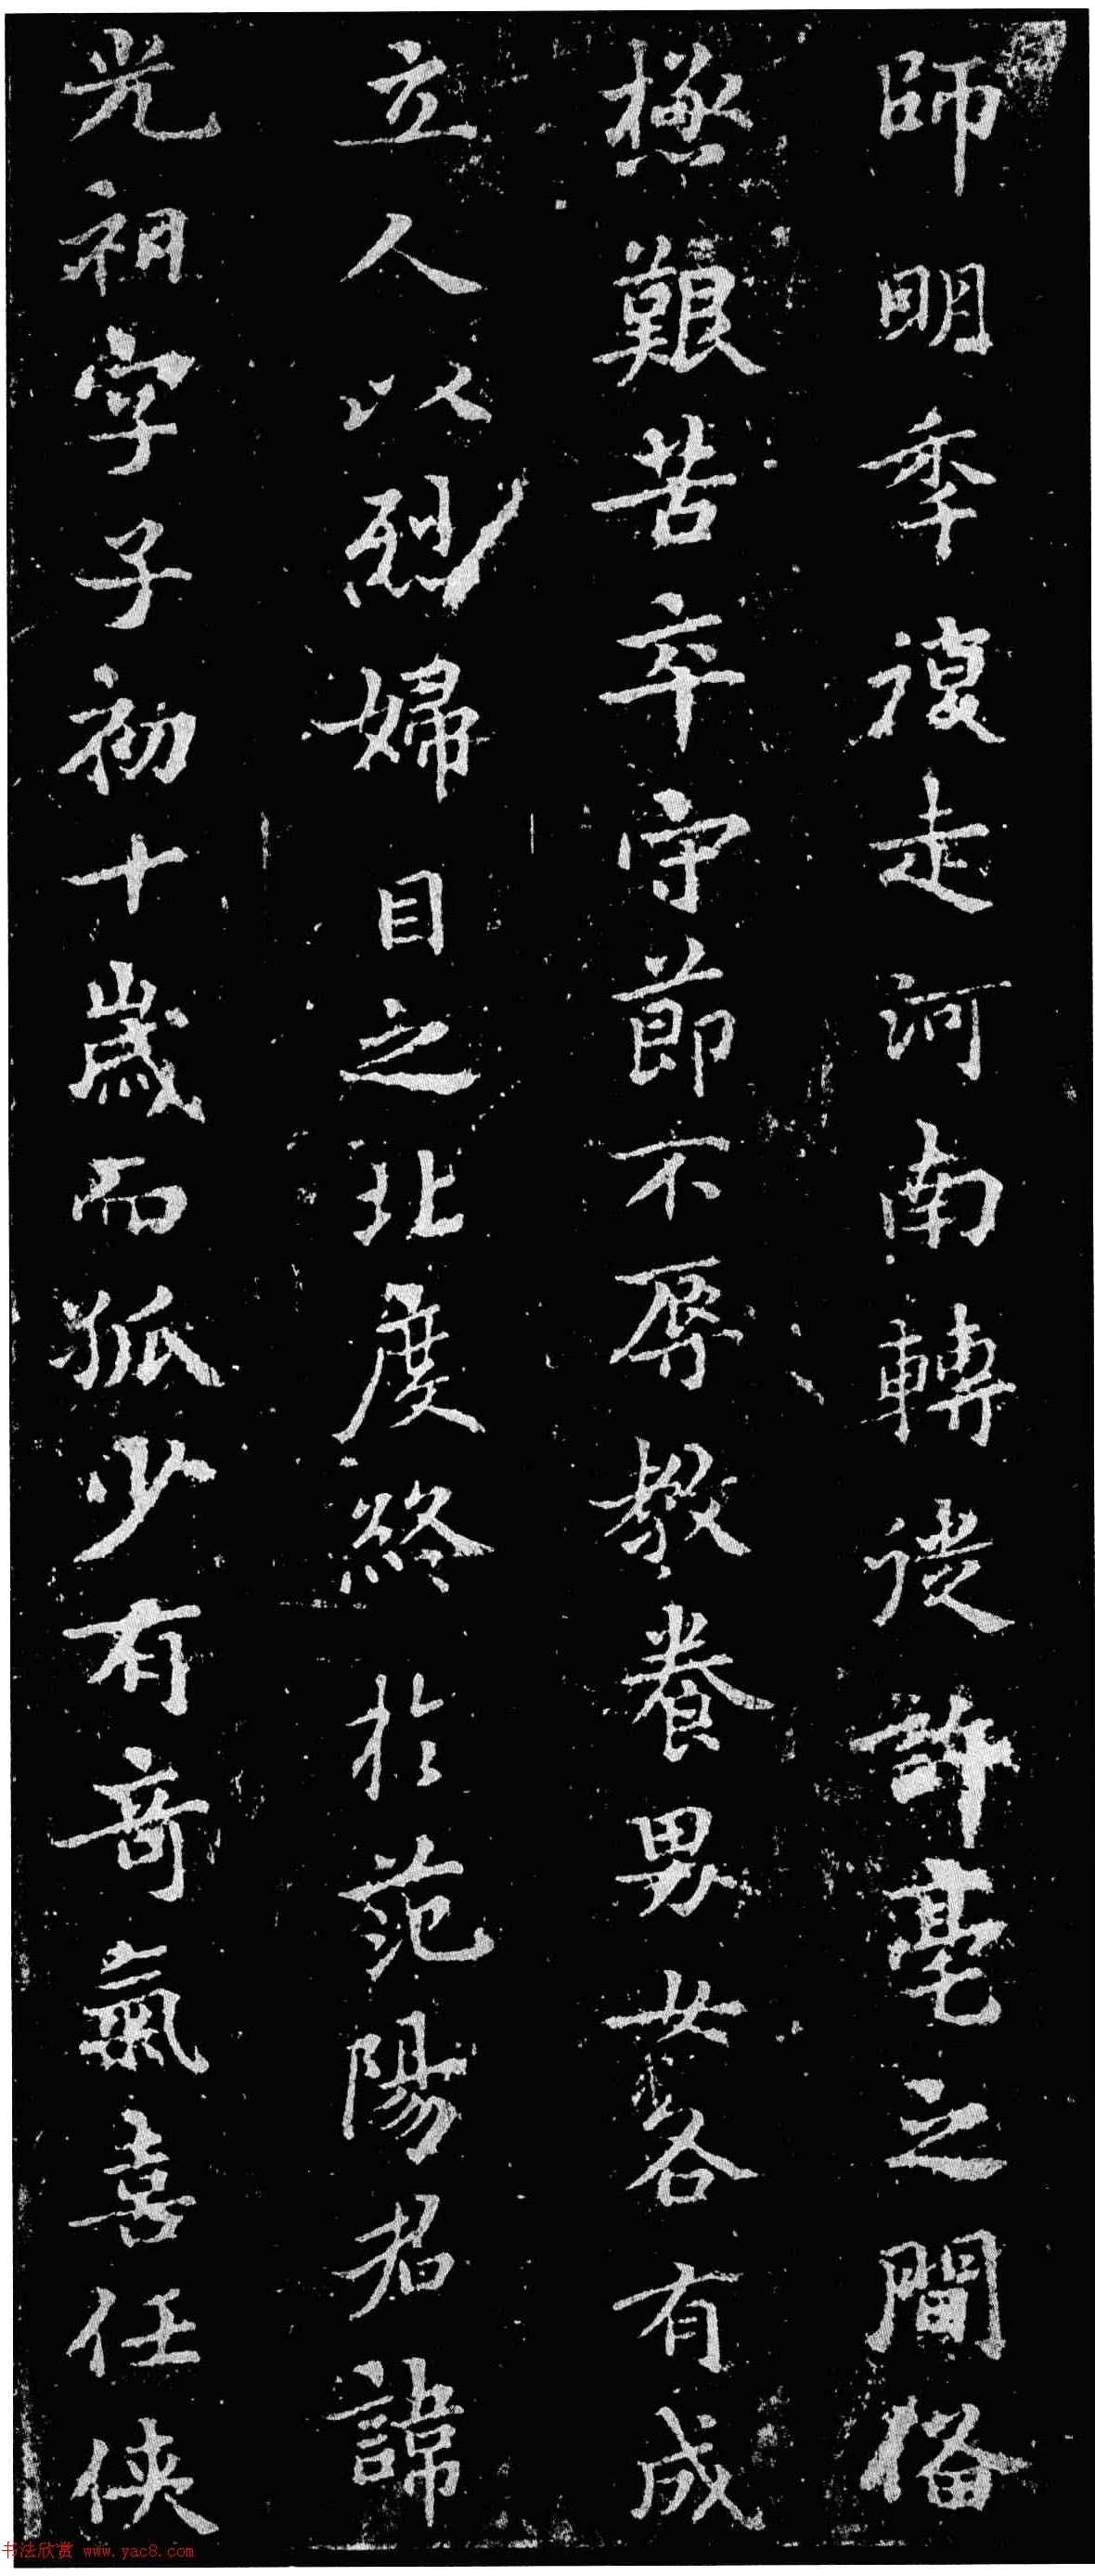 師明年復走河南轉徙許亳之間備
極艱苦卒守節不辱教養男女各有成
立人以烈婦目之北度終於范陽君諱
光祖字子初十歲而孤少有奇氣喜任俠
书法欣赏 www.yac8.com